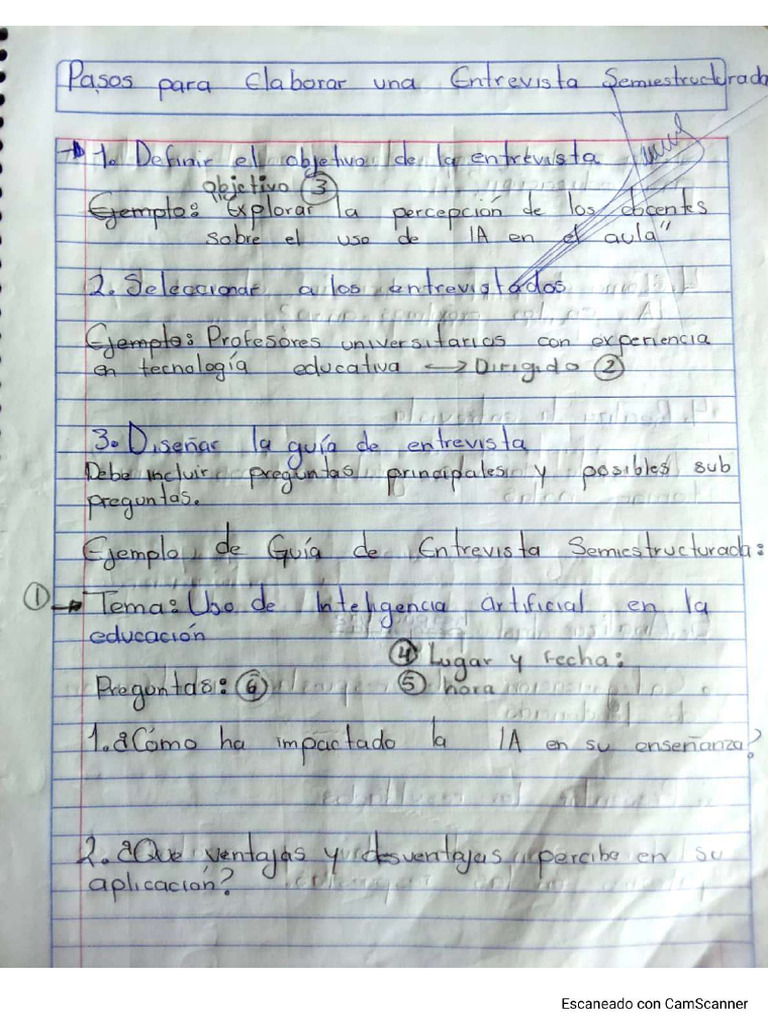 Pasos para Elaborar una Entrevista Semiestructurada
1. Definir el objetivo de la entrevista
objetivo 3
Ejemplo: "Explorar la percepción de los docentes
sobre el uso de IA en el aula"
2. Seleccionar a los entrevistados
Ejemplo: Profesores universitarios con experiencia
en tecnología educativa → Dirigido 2
3. Diseñar la guía de entrevista
Debe incluir preguntas principales y posibles sub
preguntas.
Ejemplo de Guía de Entrevista Semiestructurada:
1 → Tema: Uso de Inteligencia artificial en la
educación
4 Lugar y Fecha:
Preguntas: 6 5 hora
1. ¿Cómo ha impactado la IA en su enseñanza?
2. ¿Que ventajas y desventajas percibe en su
aplicación?
Escaneado con CamScanner